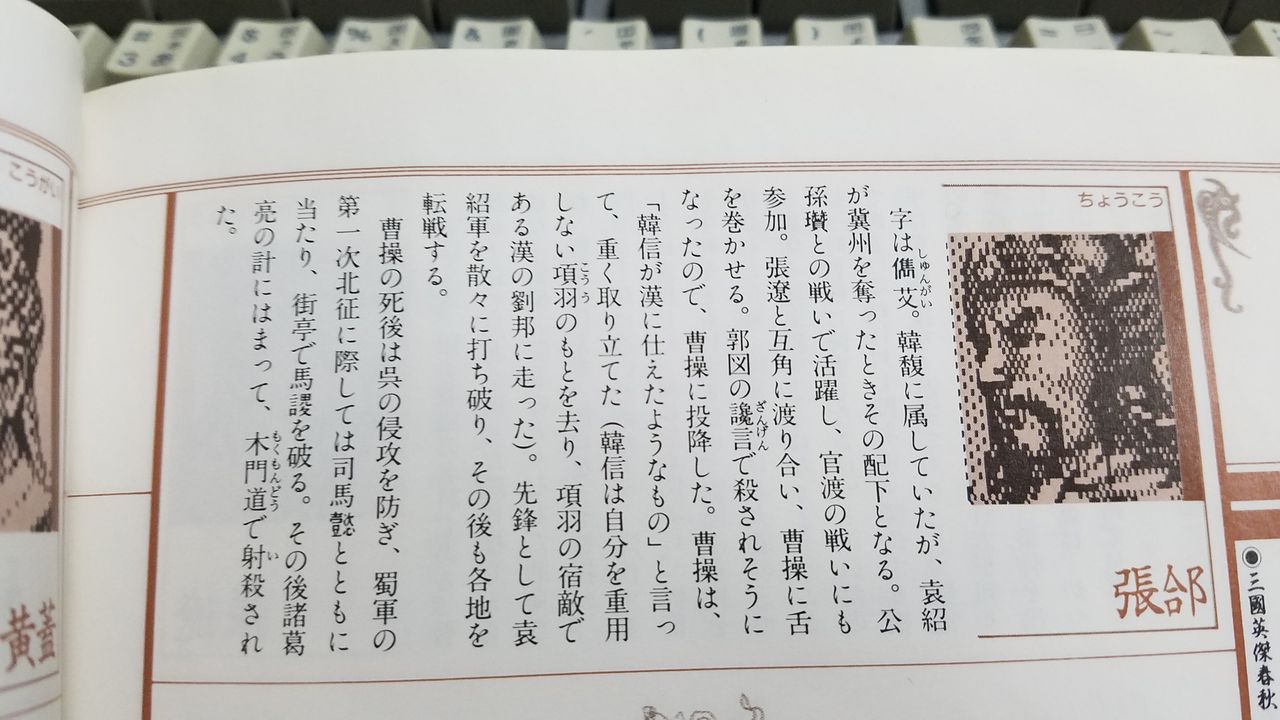 三國英傑春秋
ちょうこう
張郃
しゅんがい
字は儁艾。韓馥に属していたが、袁紹
が冀州を奪ったときその配下となる。公
孫瓚との戦いで活躍し、官渡の戦いにも
参加。張遼と互角に渡り合い、曹操に舌
ざんげん
を巻かせる。郭図の讒言で殺されそうに
なったので、曹操に投降した。曹操は、
「韓信が漢に仕えたようなもの」と言っ
て、重く取り立てた（韓信は自分を重用
こうう
しない項羽のもとを去り、項羽の宿敵で
ある漢の劉邦に走った）。先鋒として袁
紹軍を散々に打ち破り、その後も各地を
転戦する。
曹操の死後は呉の侵攻を防ぎ、蜀軍の
第一次北征に際しては司馬懿とともに
当たり、街亭で馬謖を破る。その後諸葛
もくもんどう い
亮の計にはまって、木門道で射殺され
た。
こうがい
黄蓋